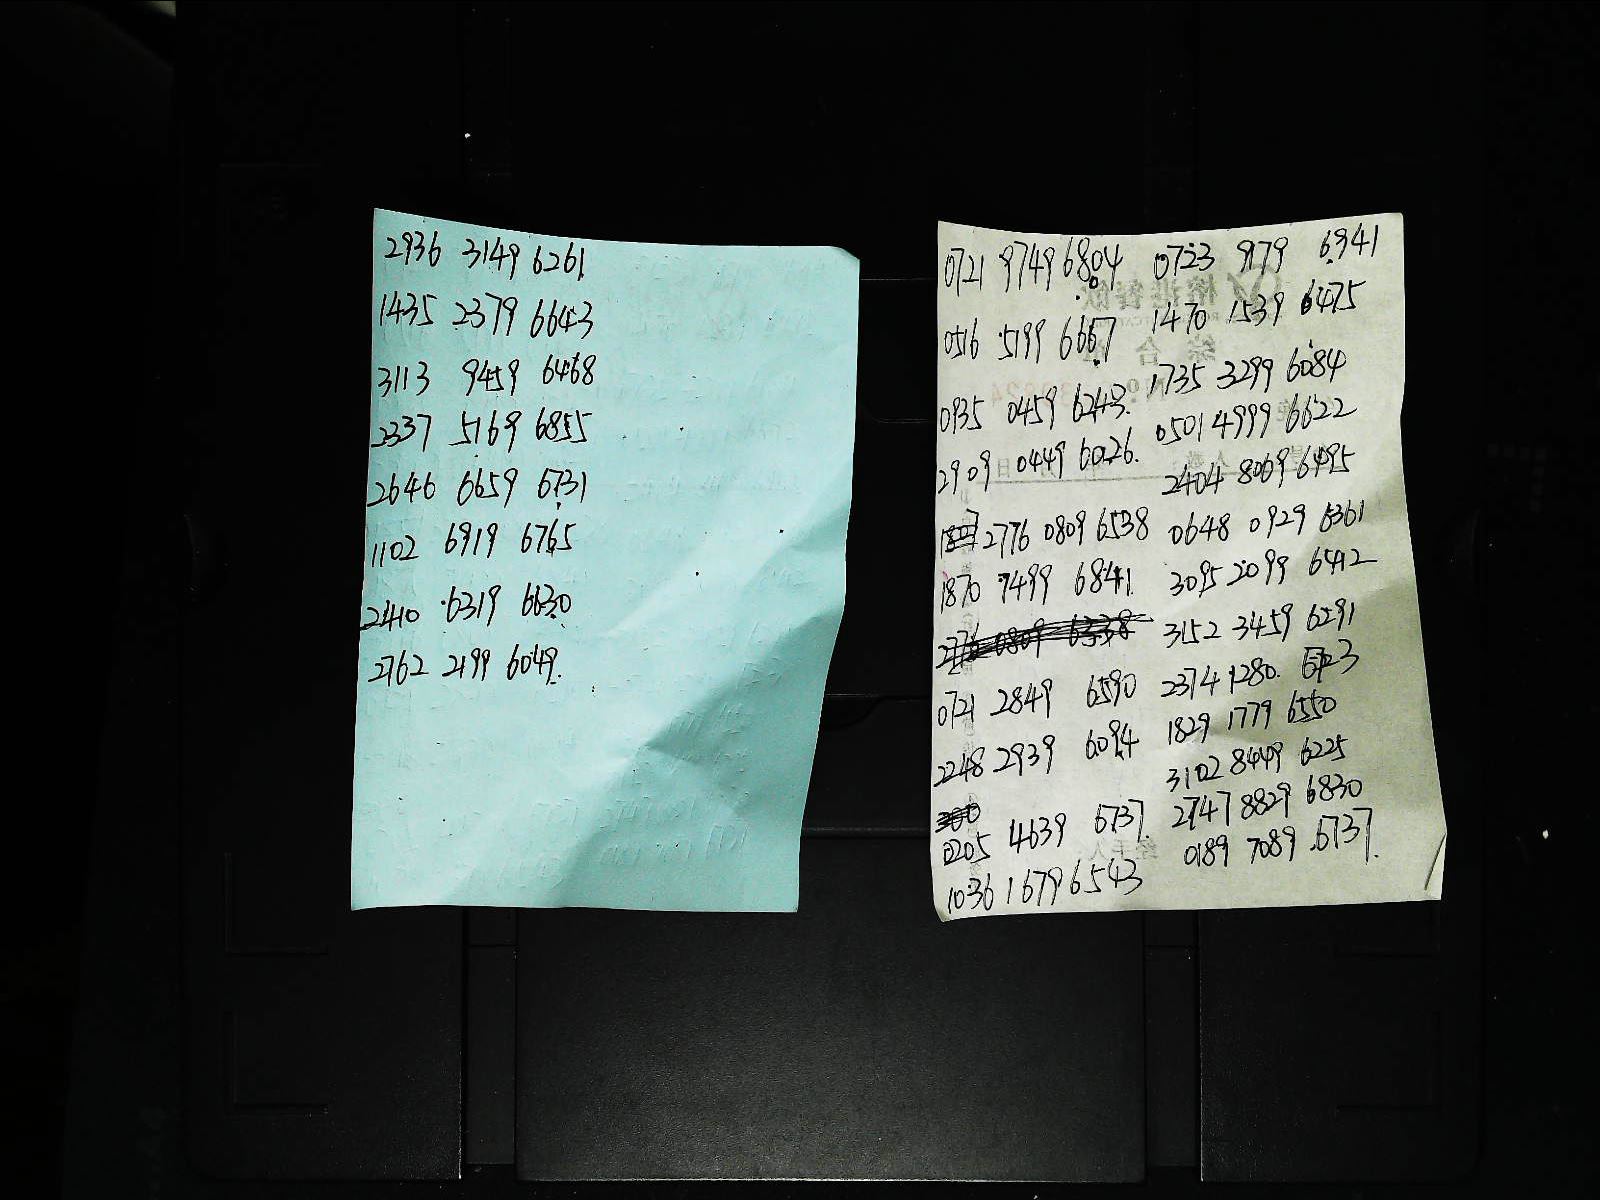 2936 3149 6261
1435 2379 6643
3113 9459 6468
2337 5169 6855
2646 6659 6731
1102 6919 6765
2410 6319 6630
2762 2199 6049.
0721 9749 6804
0516 5199 6667
0935 0459 6243.
2909 0449 6026.
2776 0809 6538
1870 7499 6841.
0721 2849 6590
2248 2939 6094
0205 4639 6737.
1036 1679 6543
0723 9179 6341
1470 1539 6475
1735 3299 6084
0501 4999 6622
2404 8069 6495
0648 0929 6361
3095 2099 6412
3152 3459 6291
2374 1280.
1829 1779 6550
3102 8449 6225
2747 8829 6830
0189 7089 6737.